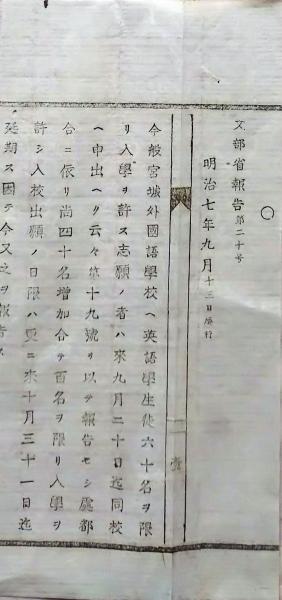 〇
文部省報告第二十号
明治七年九月十三日発行
一
壱
今般宮城外國語學校ヘ英語學生徒六十名ヲ限
リ入學ヲ許ス志願ノ者ハ來九月二十日迄同校
ヘ申出ヘク云々第十九號ヲ以テ報告セシ處都
合ニ依リ尚四十名増加合テ百名ヲ限リ入學ヲ
許シ入校出願ノ日限ハ更ニ來十月三十一日迄
延期ス因テ今又之ヲ報告ス